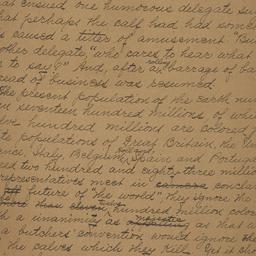 at ensued one humorous delegate su
hat perhaps the calf had had some
s caused a titter of amusement. "Bu
other delegate, "who cares to hear what
to say?" And, after a rolling barrage of ba
read of business was resumed.
The present population of the earth nu
seventeen hundred millions of wh
lve hundred millions are colored
te populations of Great Britain, the
ance, Italy, Belgium, Holland, Spain and Portuga
red two hundred and eighty-three millio
representatives meet in conclav
future of "the world", they ignore the
more than eleven hundred million color
th a unanimity as majestic as that
a butchers' convention would ignore the
the calves which they kill. Yet it sho